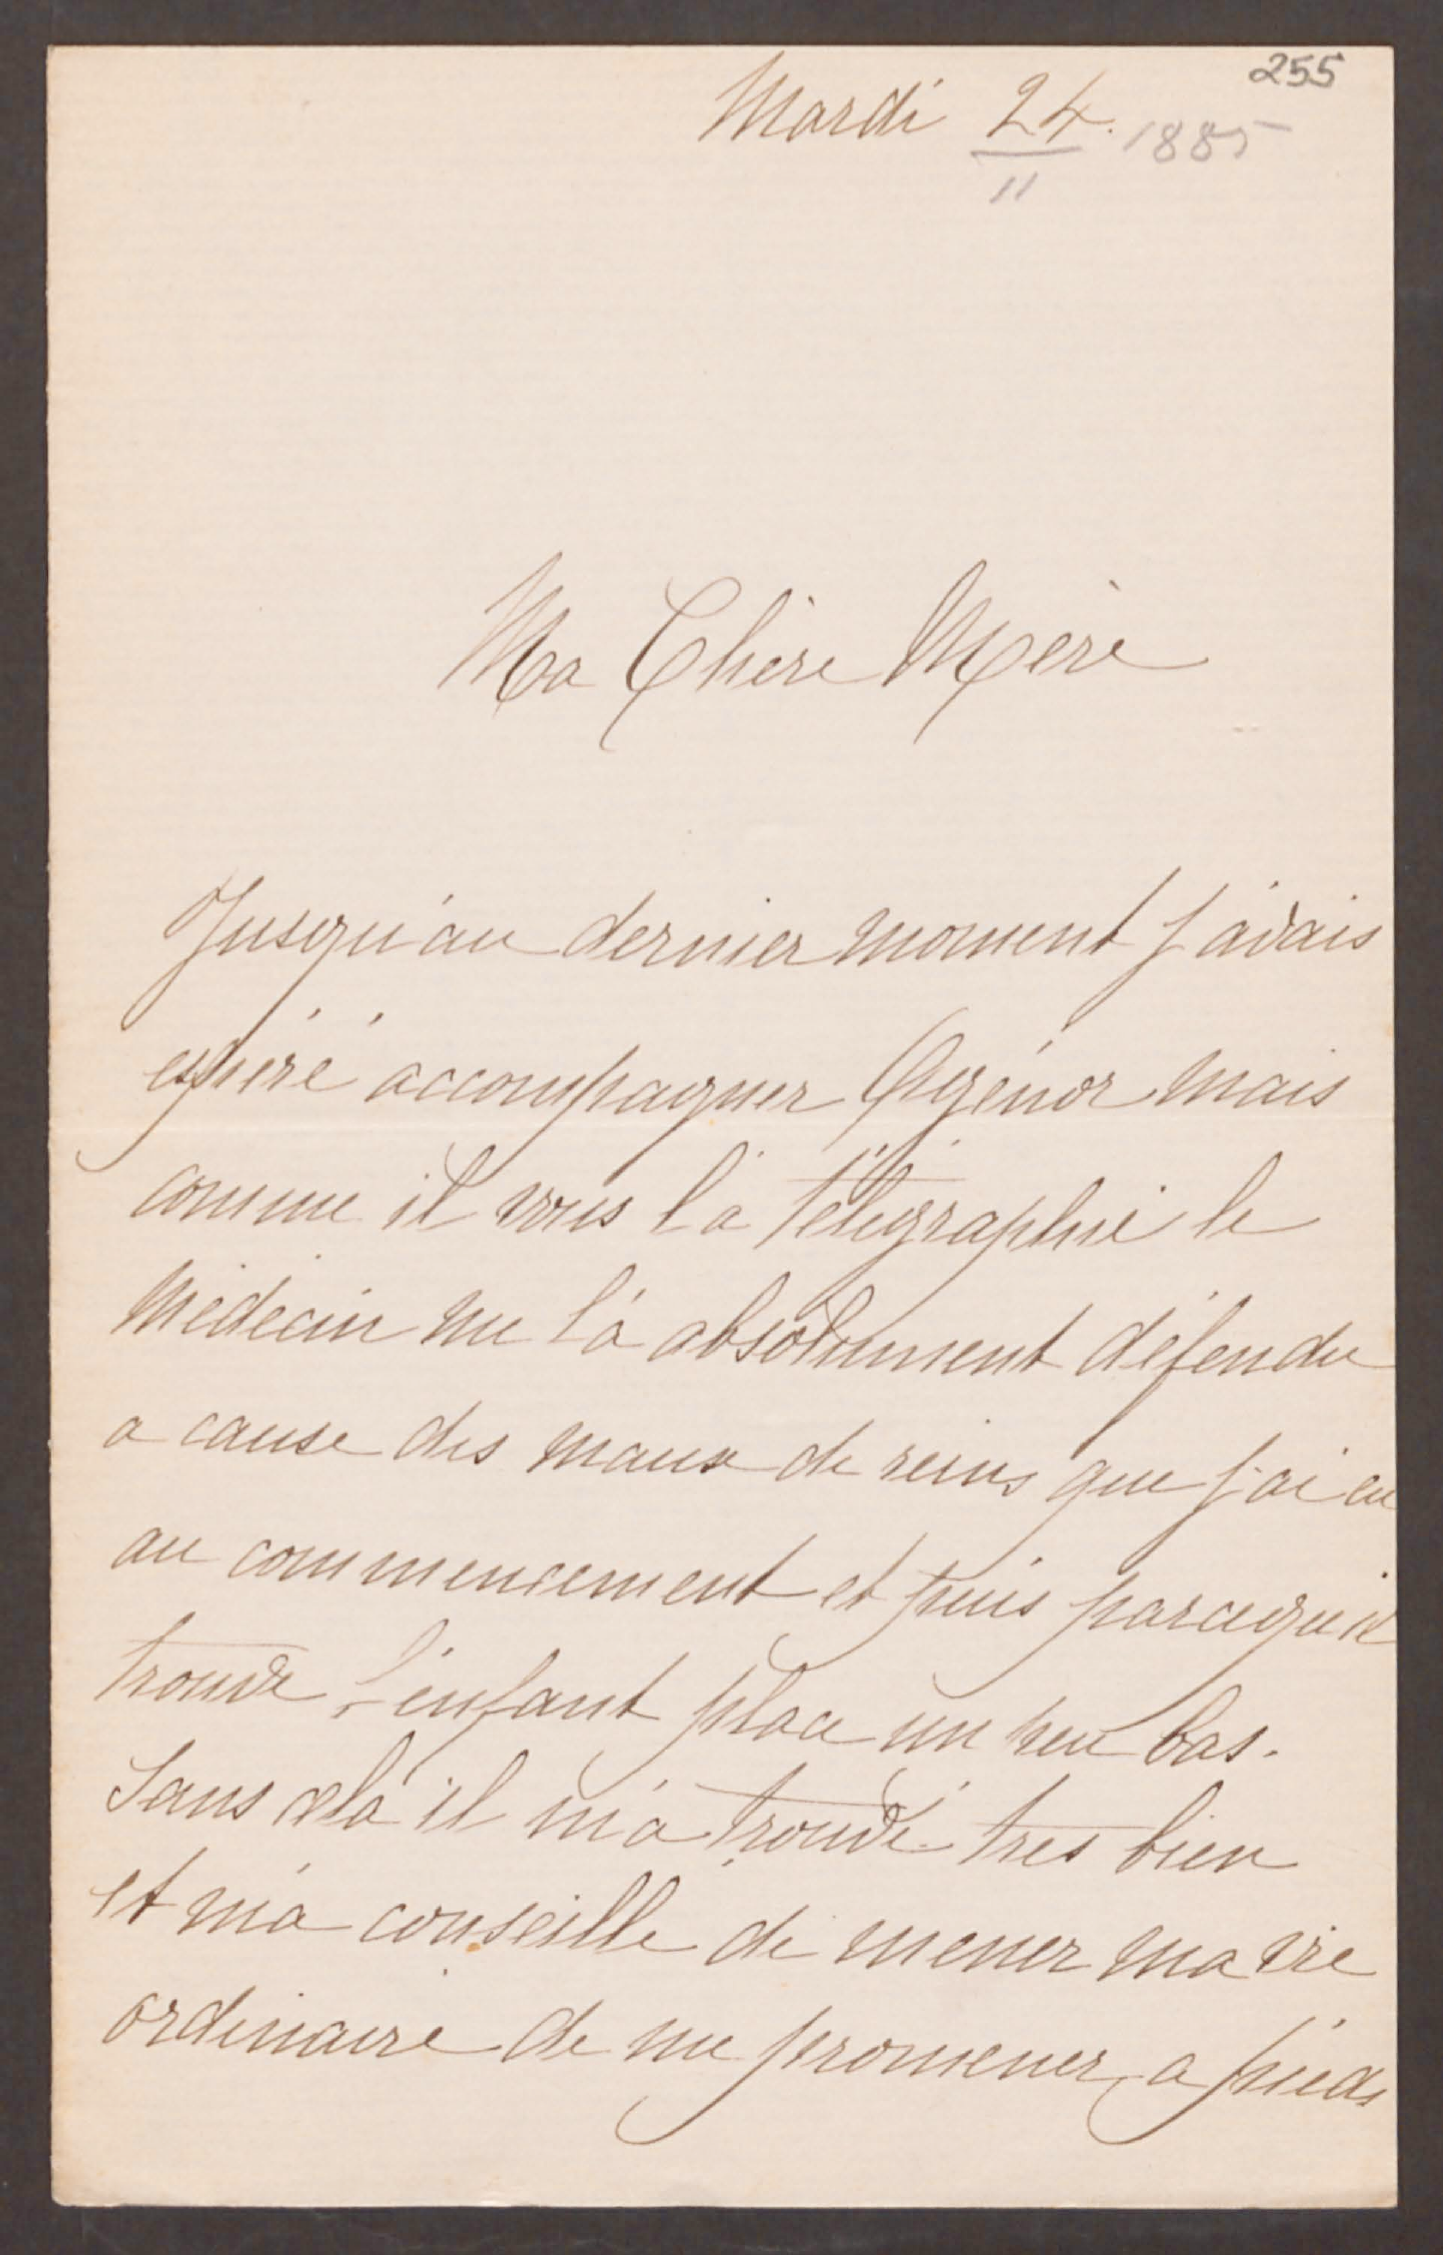 255
Mardi 24. 1885
11
Ma Chère Mère
Jusqu'au dernier moment j'avais
espéré accompagner Agénor mais
comme il vous l'a télégraphié le
médecin me l'a absolument défendu
a cause des maux de reins que j'ai eu
au commencement et puis parcequ'il
trouve l'enfant place un peu bas.
Sans cela il m'a trouvé tres bien
et m'a conseille de mener ma vie
ordinaire de me promener a pieds